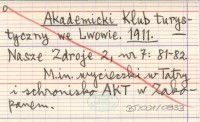 Akademicki Klub turys-
tyczny we Lwowie. 1911. —
Nasze Zdroje 2, nr 7: 81-82
M.in. wycieczki w Tatry
i schronisko AKT w Zako-
panem.